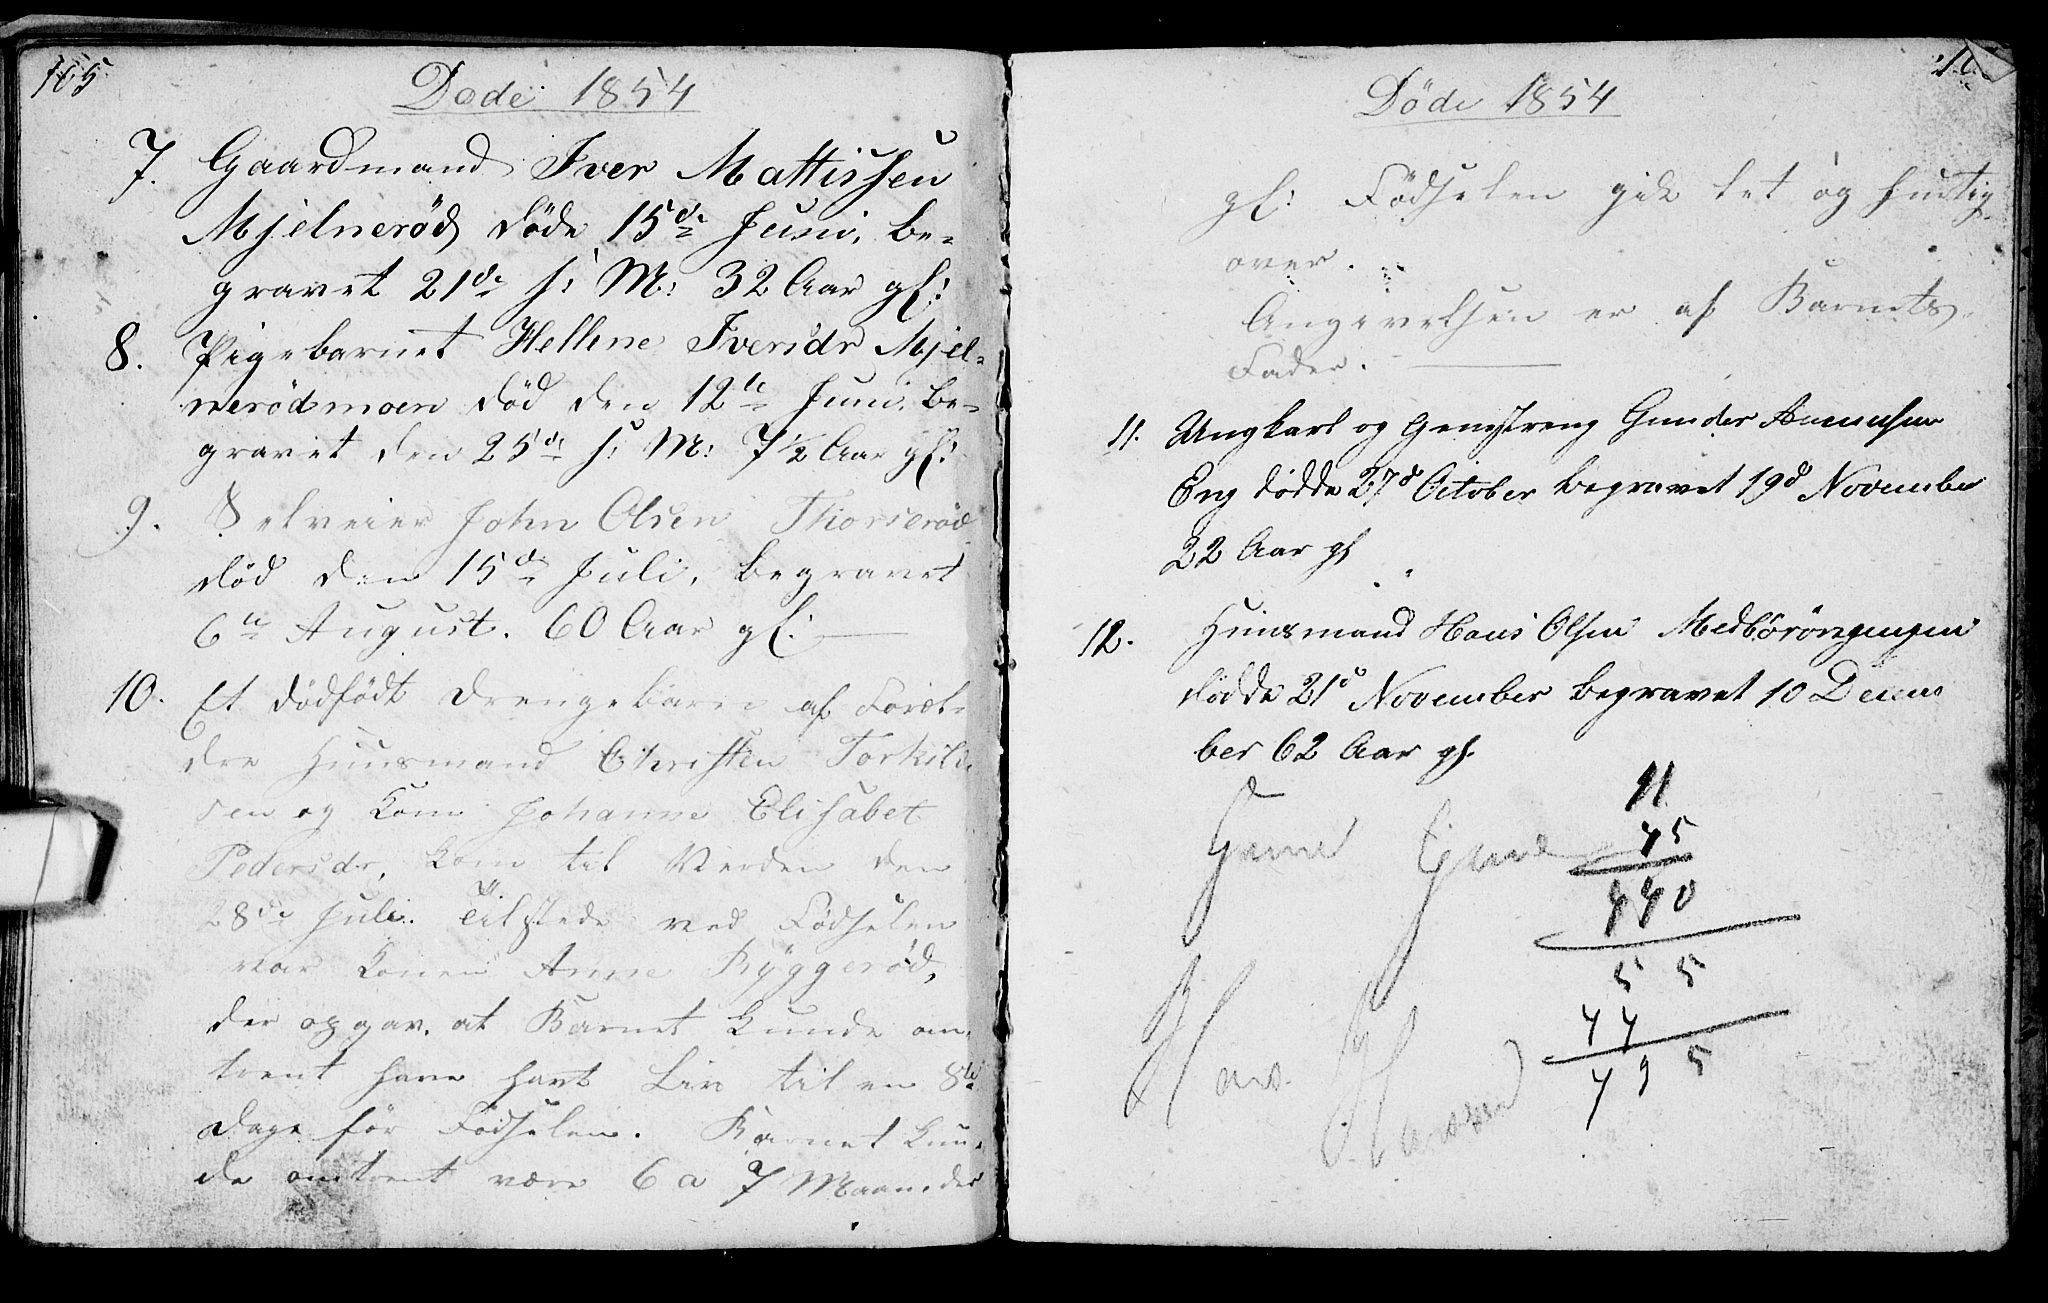 165
Døde 1854
7. Gaardmand Iver Mattissen
Mjelnerød døde 15de Juni, be-
gravet 21de s: M: 32 Aar gl:
8. Pigebarnet Hellene Iversdr Mjel-
nerødmoen død den 12te Juni, be-
gravet den 25de s: M: 7 1/2 Aar gl:
9. Selveier John Olsen Thorserød
død den 15de Juli, begravet
6te August. 60 Aar gl:
10. Et dødfødt Drengebarn af Foræl-
dre Huusmand Christen Torkild-
sen og Kone Johanne Elisabet
Pedersdr, kom til Verden den
28de Juli. Tilstede ved Fødselen
var Konen Anne Ryggerød,
der opgav, at Barnet kunde om-
trent have havt Liv til en 8te
Dage før Fødselen. Barnet kun-
de omtrent være 6 a 7 Maaneder
Døde 1854
gl: Fødselen gik let og hurtig
over.
Angivelsen er af Barnets
Fader.
11. Ungkarl og Gevistreng Gunder
Eng dødde 27d October begravet 19d November
22 Aar gl
12. Huusmand Hans Olsen
dødde 21d November begravet 10 Decem
ber 62 Aar gl.
11
45
440
5 5
44
495
Hans Hansen